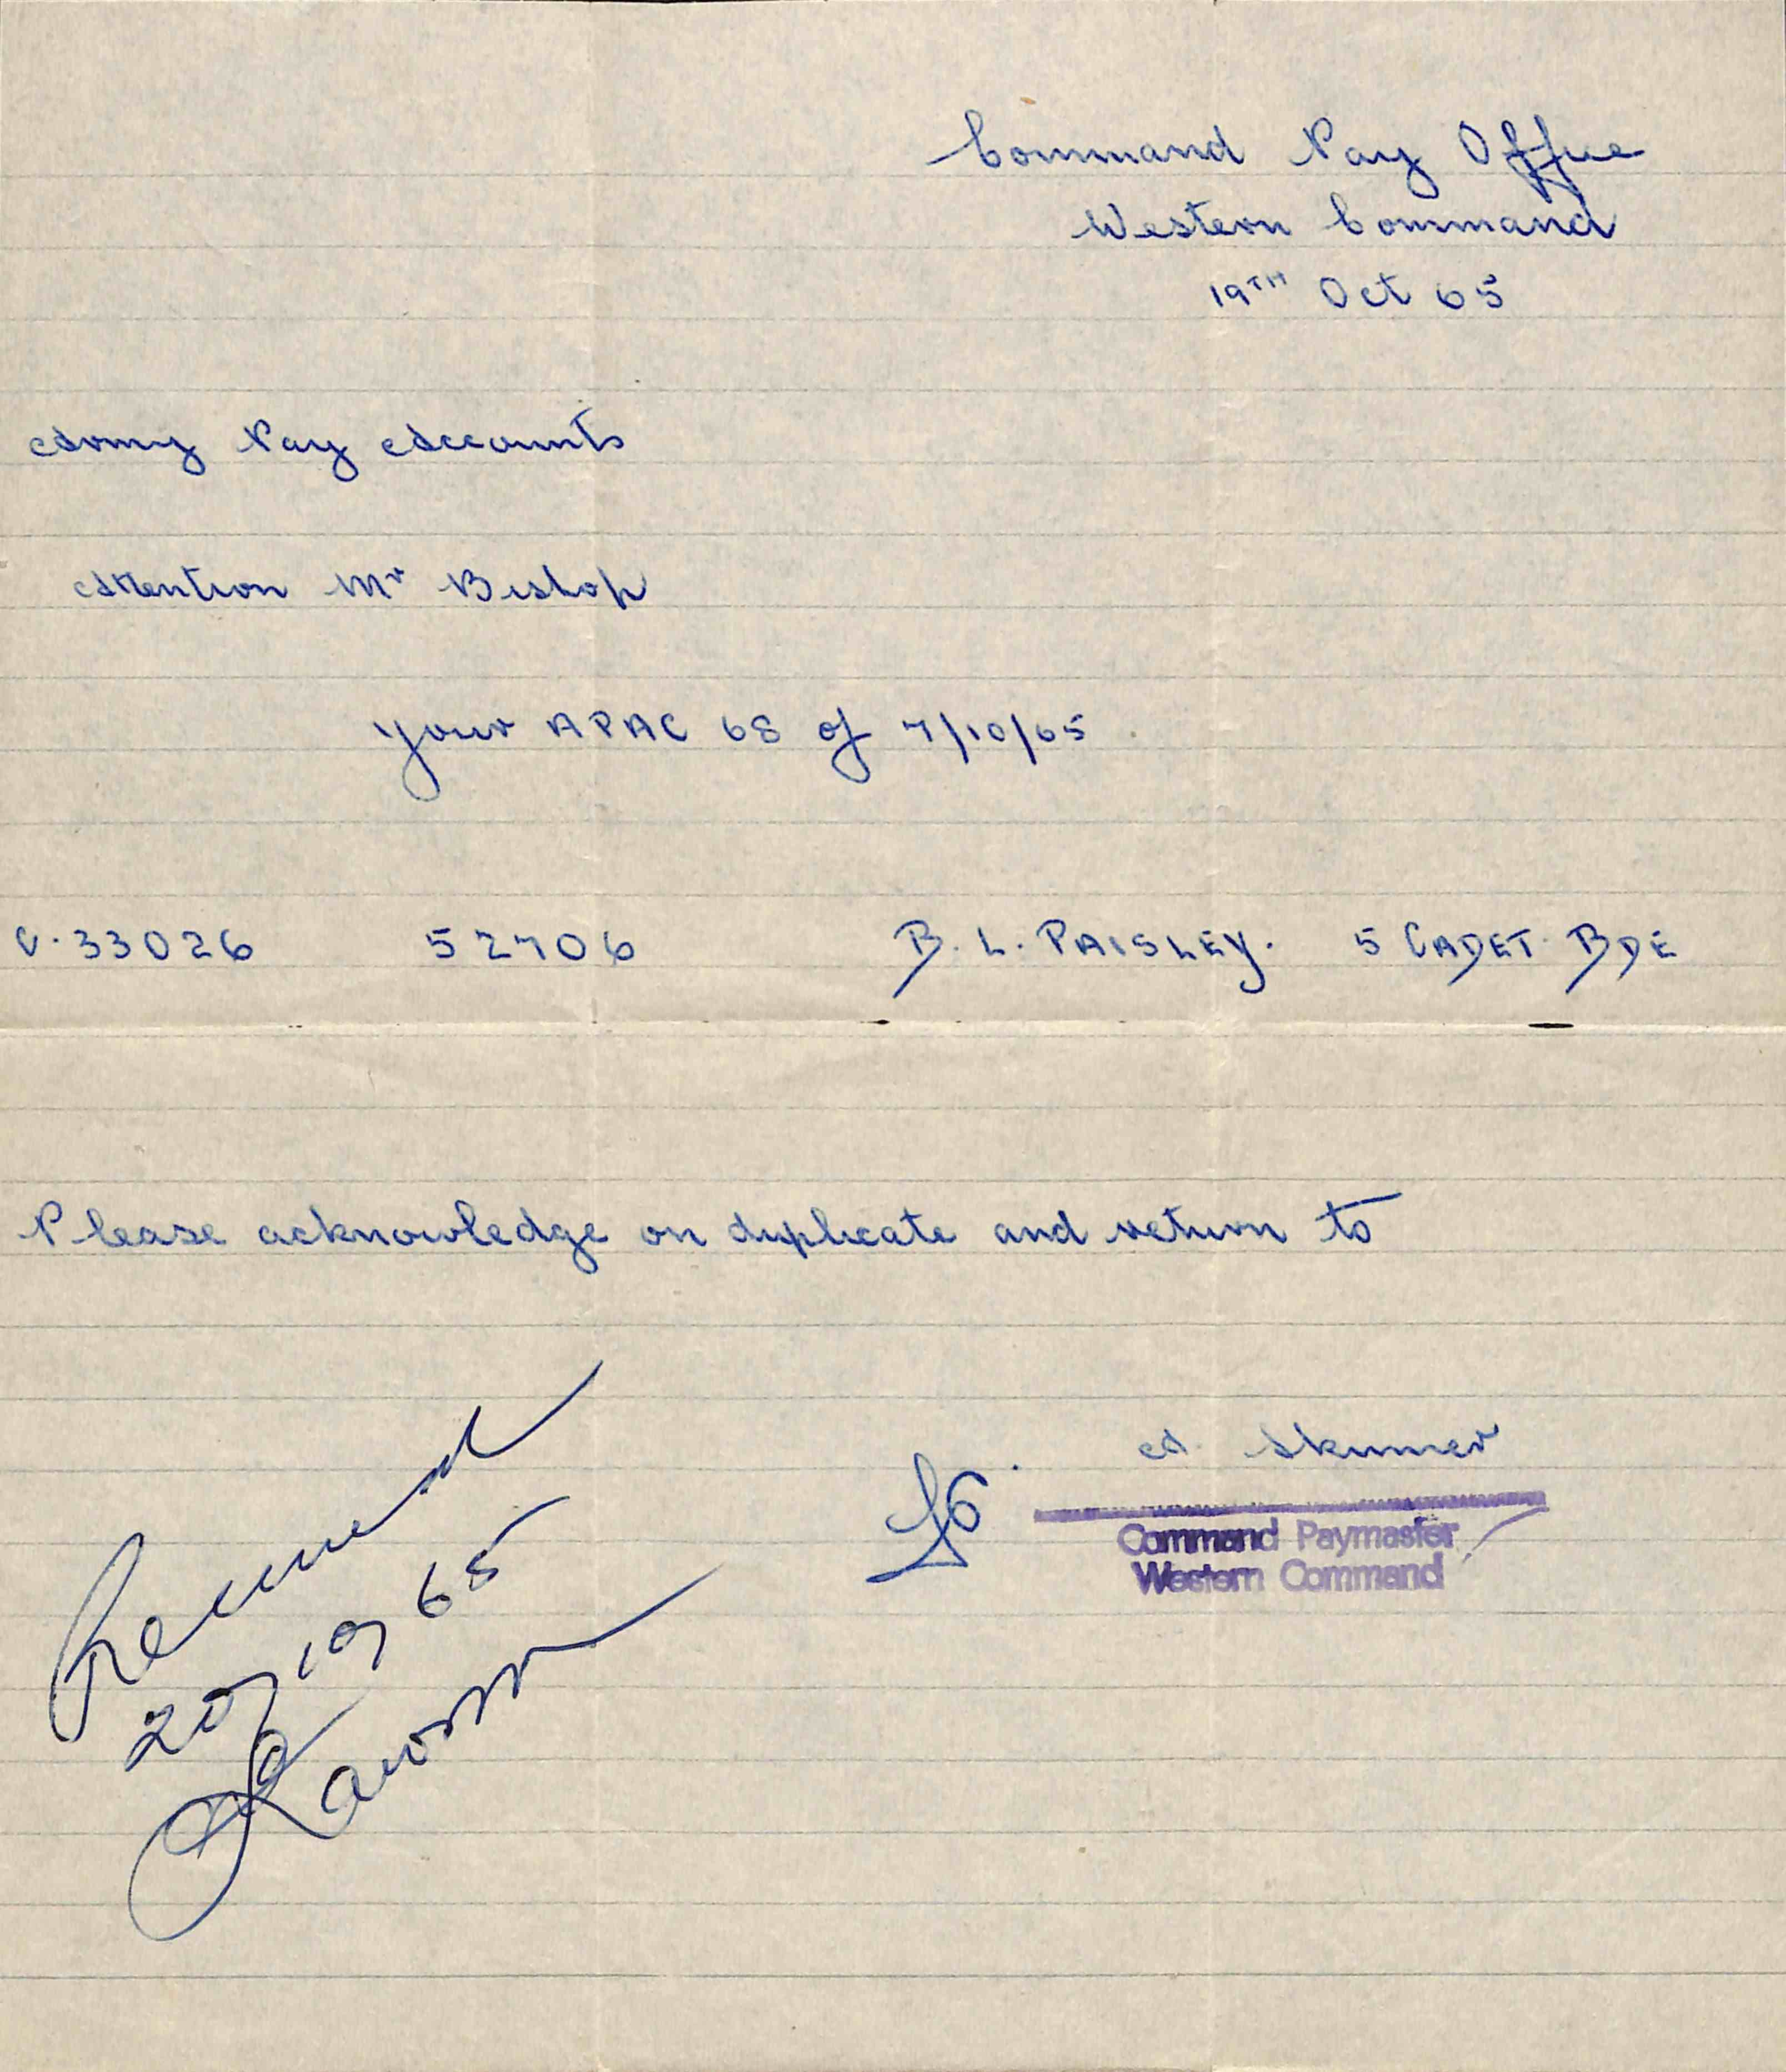 Command Pay Office
Western Command
19TH Oct 65
Army Pay Accounts
Attention Mr Bishop
your APAC 68 of 7/10/65
C.33026 52706 B. L. PAISLEY. 5 CADET BDE
Please acknowledge on duplicate and return to
A. Skinner
Command Paymaster
Western Command
Received
20/10/65